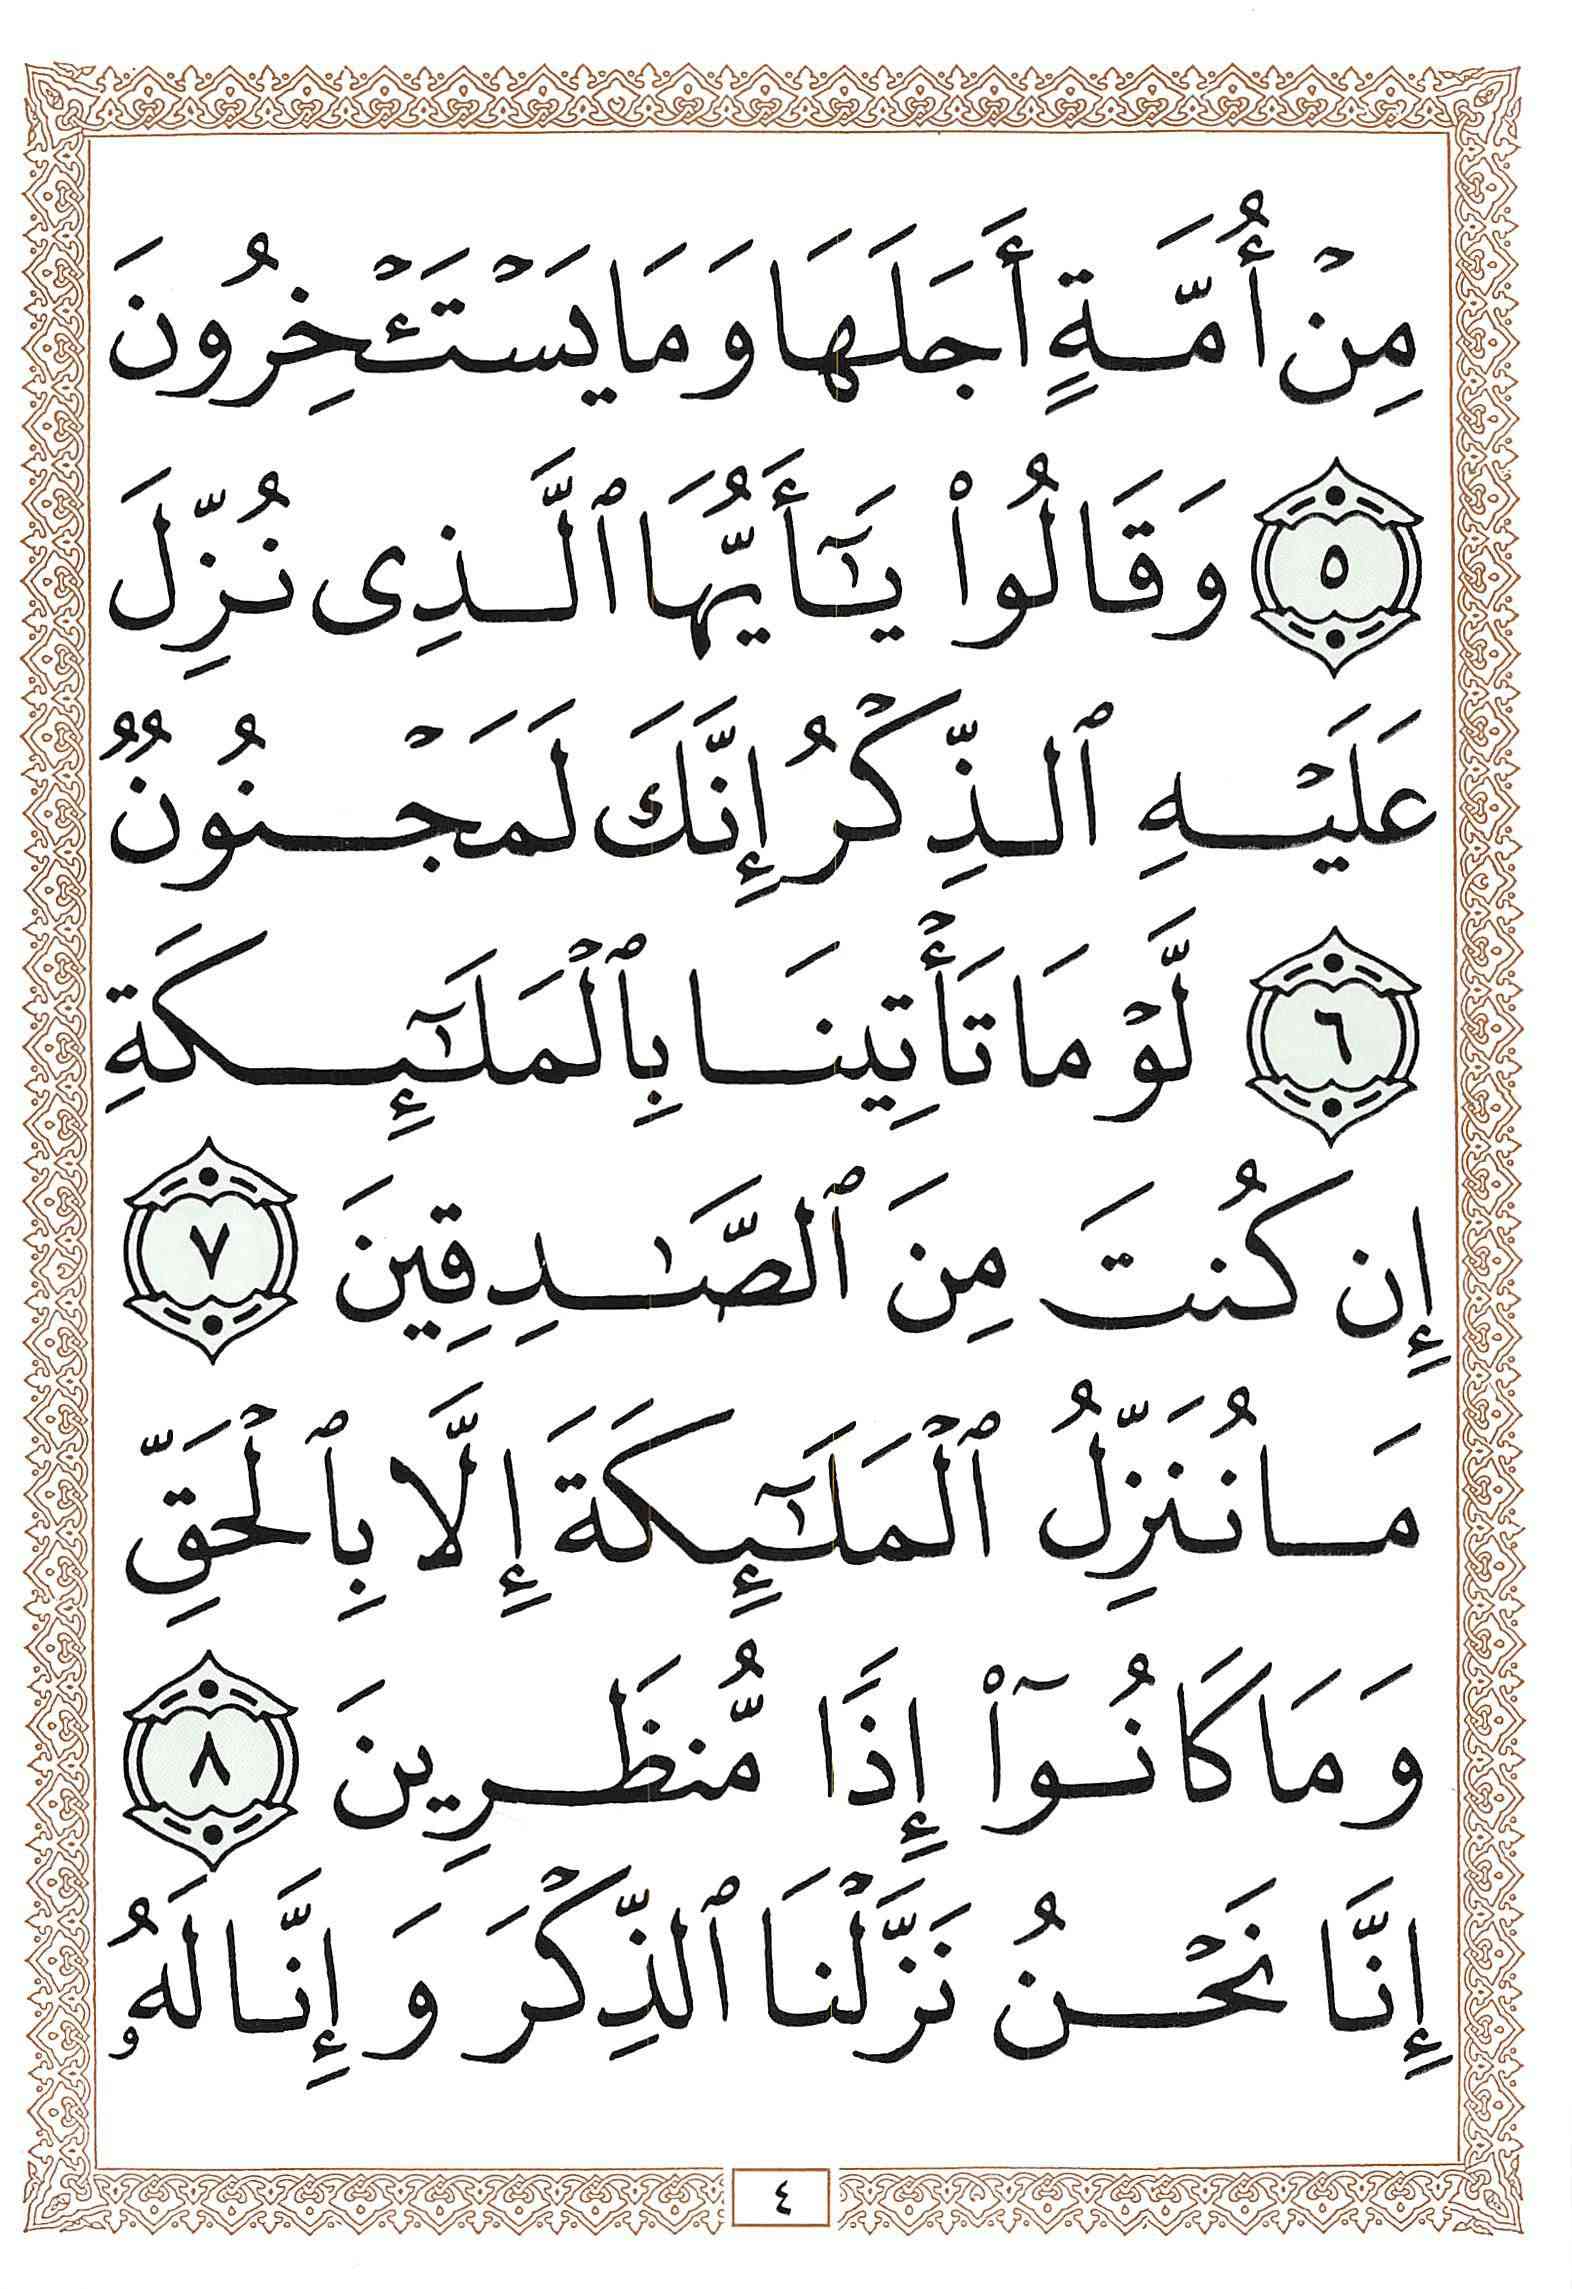 مِنْ أُمَّةٍ أَجَلَهَا وَمَا يَسْتَـْٔخِرُونَ
٥ وَقَالُوا۟ يَـٰٓأَيُّهَا ٱلَّذِى نُزِّلَ
عَلَيْهِ ٱلذِّكْرُ إِنَّكَ لَمَجْنُونٌ
٦ لَّوْ مَا تَأْتِينَا بِٱلْمَلَـٰٓئِكَةِ
إِن كُنتَ مِنَ ٱلصَّـٰدِقِينَ ٧
مَا نُنَزِّلُ ٱلْمَلَـٰٓئِكَةَ إِلَّا بِٱلْحَقِّ
وَمَا كَانُوٓا۟ إِذًا مُّنظَرِينَ ٨
إِنَّا نَحْنُ نَزَّلْنَا ٱلذِّكْرَ وَإِنَّا لَهُۥ
٤